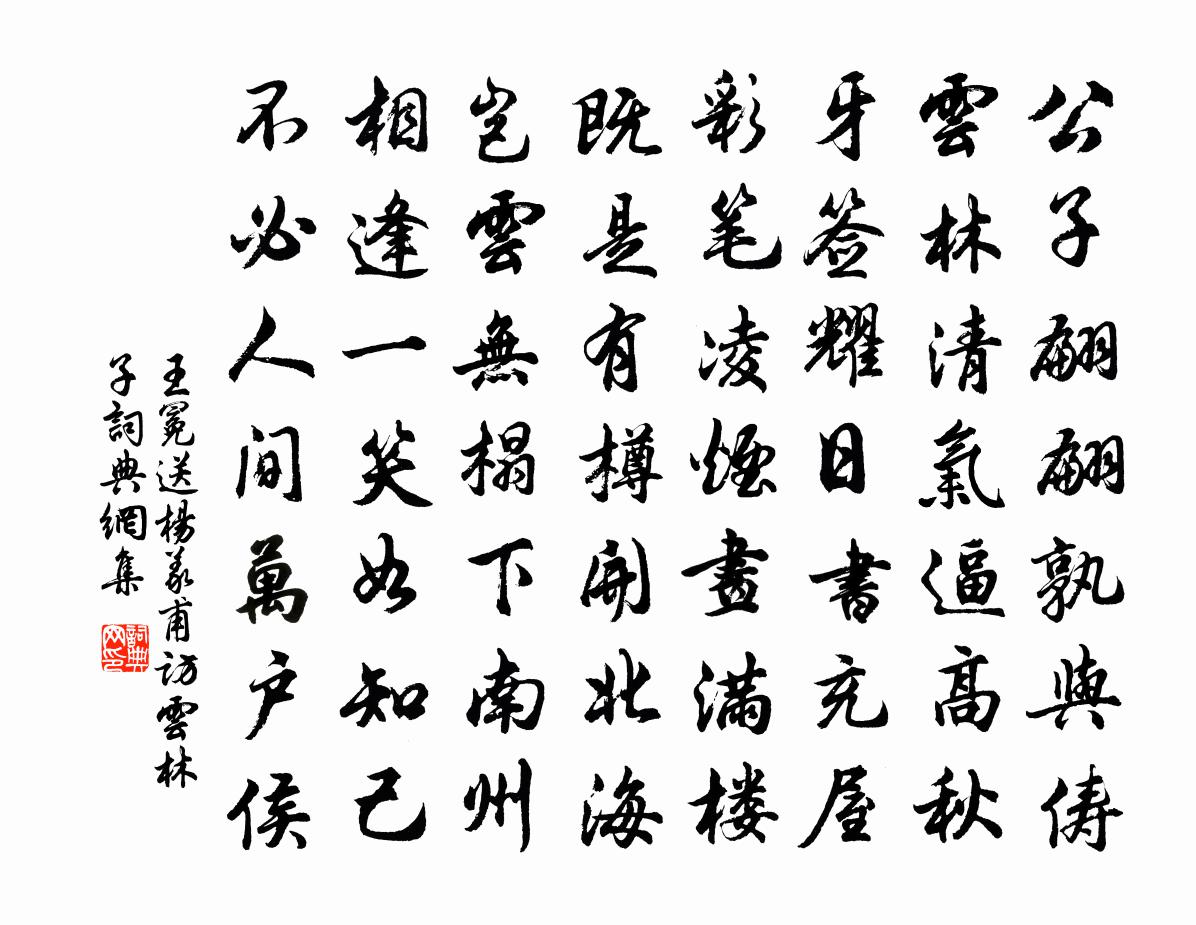 公子翩翩孰與儔
雲林清氣逼高秋
牙签耀日書充屋
彩笔凌煙畫满楼
既是有樽開北海
岂雲無榻下南州
相逢一笑如知己
不必人间萬户侯
王冕送楊义甫访雲林
子詞典網集
詞典网印